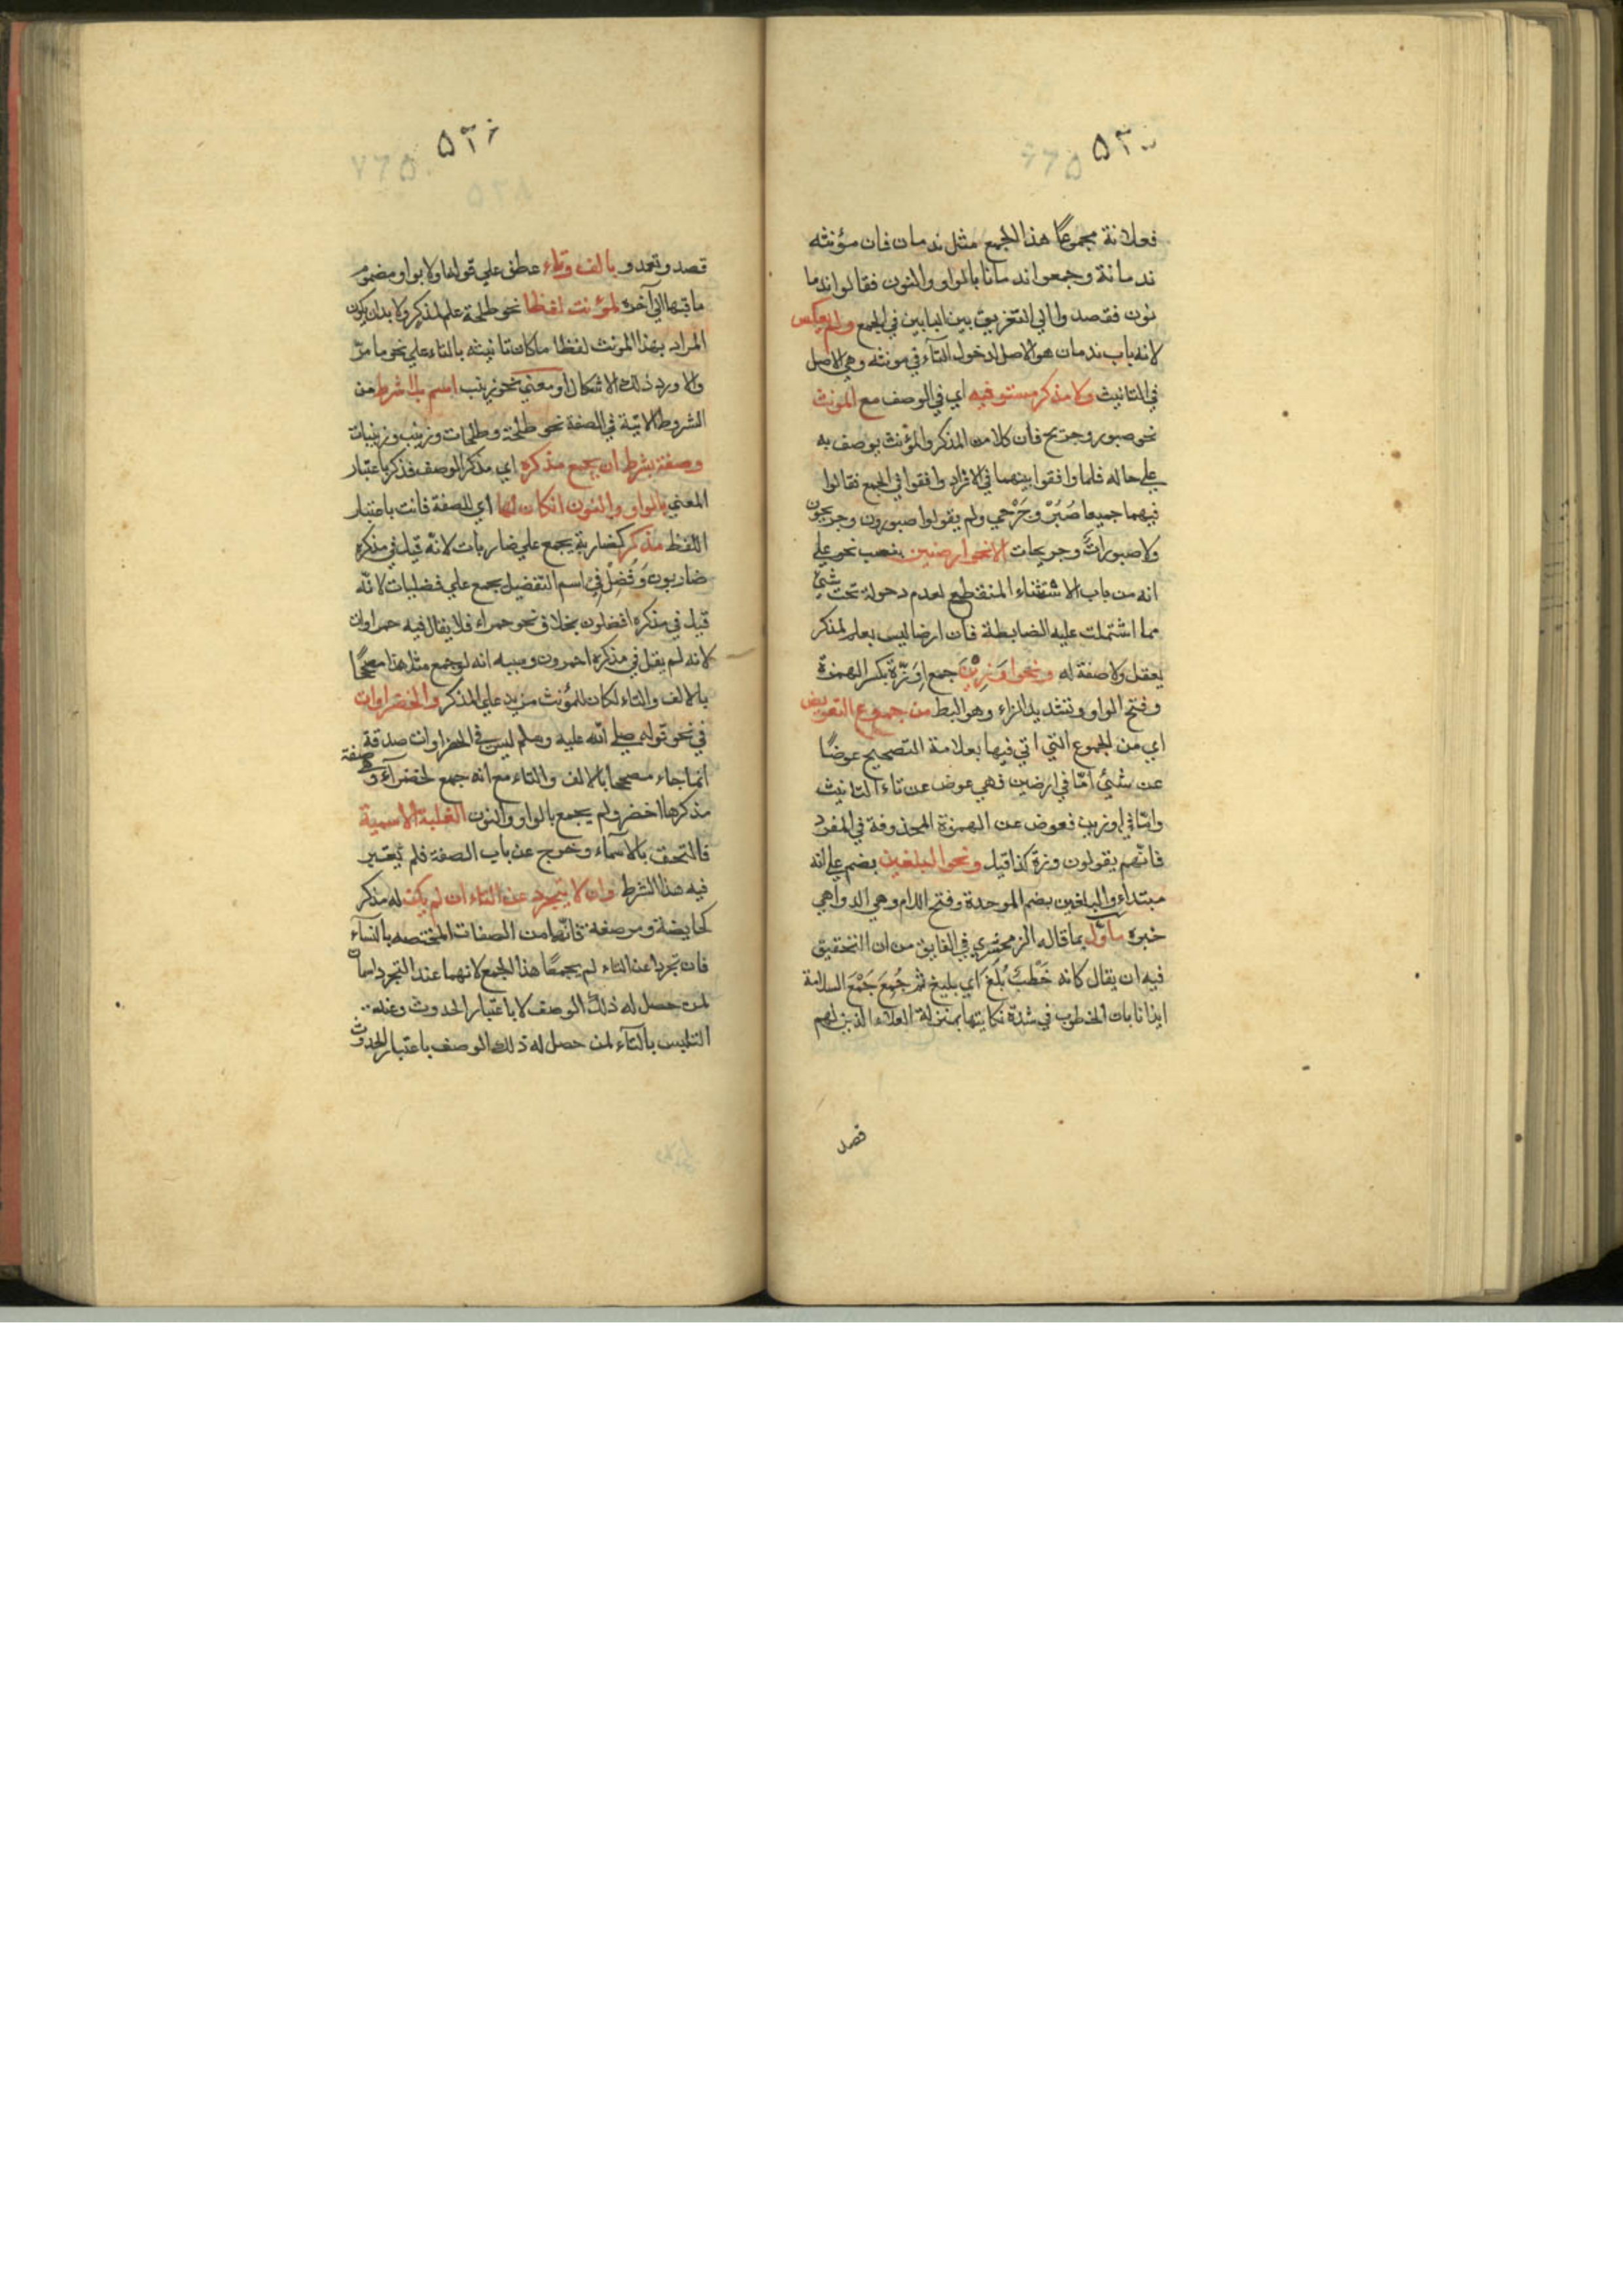 فعلانة مجموعا هذا الجمع مثل ندمان فان مؤنثه
ندمانة وجمعوا ندمانا بالواو والنون فقالوا ندما
نون فقصدوا الي التفريق بين البابين في الجمع ولم يعكس
لانه باب ندمان هو الاصل لدخول التآء في مونثه وهي الاصل
في التانيث ولا مذكر مستو فيه اي في الوصف مع المونث
نحو صبور وجريح فان كلا من المذكر والمؤنث يوصف به
علي حاله فلما وافقوا بينهما في الافراد وافقوا في الجمع فقالوا
فيهما جميعا صُبُرْ وجَرْحي ولم يقولوا صبورون وجريحون
ولا صبورات وجريحات الا نحو ارضين بنصب نحو علي
انه من باب الاستثناء المنقطع لعدم دخوله تحت شئ
مما اشتملت عليه الضابطة فان ارضا ليس بعلم لمذكر
يعقل ولا صفة له ونحو اوَزِينَ جمع اِوَزّة بكسر الهمزة
وفتح الواو وتشديد الزاء وهو البط من جموع التعويض
اي من الجموع التي اتي فيها بعلامة التصحيح عوضًا
عن شئ امّا في ارضين فهي عوض عن تاء التانيث
وامّا في اوزين فعوض عن الهمزة المحذوفة في المفرد
فانّهم يقولون وزة كذا قيل ونحو البلغين بضم علي انه
مبتداء والبلغين بضم الموحدة وفتح اللام وهي الدواهي
خبره مأوّل بما قاله الزمخشري في الفايق من ان التحقيق
فيه ان يقال كانه خَطْبٌ بُلَغٌ اي بليغ ثم جُمِعَ جَمْعَ السلامة
ايذانا بان الخطوب في شدة نكايتها بمنزلة العقلاء الذين لهم
قصد
قصد وتعمد و بالف وتاء عطف علي قوله اولا بواو مضموم
ما قبلها الي آخره لمؤنث لفظا نحو طلحة علم لمذكر ولا بد ان يكون
المراد بهذا المونث لفظا ما كان تانيثه بالتاء علي نحو ما مرّ
والا ورد ذلك الاشكال او معني نحو زينب اسم بلا شرط من
الشروط الآتية في الصفة نحو طلحة وطلحات وزينب وزينبات
وصفة بشرط ان يجمع مذكره اي مذكر الوصف فذكر باعتبار
المعني بالواو والنون ان كان لها اي للصفة فانث باعتبار
اللفظ مذكر كضاربة يجمع علي ضاربات لانه قيل في مذكره
ضاربون وَفُضْلي اسم التفضيل يجمع علي فضليات لانّه
قيل في مذكره افضلون بخلاف نحو حمراء فلا يقال فيه حمراوات
لانه لم يقل في مذكره احمرون وسببه انه لو جمع مثل هذا مصححا
بالالف والتاء لكان للمؤنث مزيد علي المذكر والخضراوات
في نحو قوله صلي الله عليه وسلم ليس في الخضراوات صدقة
انما جاء مصححا بالالف والتاء مع انه جمع لخضرآء وصفة
مذكرها اخضر ولم يجمع بالواو والنون لغلبة الاسمية
فالتحق بالاسمآء وخرج عن باب الصفة فلم يعتبر
فيه هذا الشرط وان لا يتجرد عن التاء ان لم يكن له مذكر
كحايضة ومرضعة فانّهما من الصفات المختصه بالنسآء
فان تجردا عن التاء لم يجمعا هذا الجمع لانهما عند التجرد اسمان
لمن حصل له ذلك الوصف لا باعتبار الحدوث وعند
التلبس بالتآء لمن حصل له ذلك الوصف باعتبار الحدوث